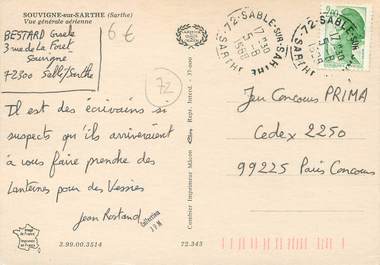 SOUVIGNE-sur-SARTHE (Sarthe)
Vue générale aérienne
6 €
BESTARD
3 rue de la Foret
Souvigne
72300 Sablé/Sarthe
72
Il est des écrivains si
suspects qu'ils arriveraient
à vous faire prendre des
Lanternes pour des Vessies
Jean Rostand
Combier Imprimeur Mâcon
Repr. Interd. 37-000
Collection
72-SABLE-SUR-SARTHE
17H30
5-8
1986
SARTHE
72-SABLE-SUR-
17H30
5-8
1986
Jeu Concours PRIMA
Cedex 2250
99225 Paris Concours
3.99.00.3514
72.345